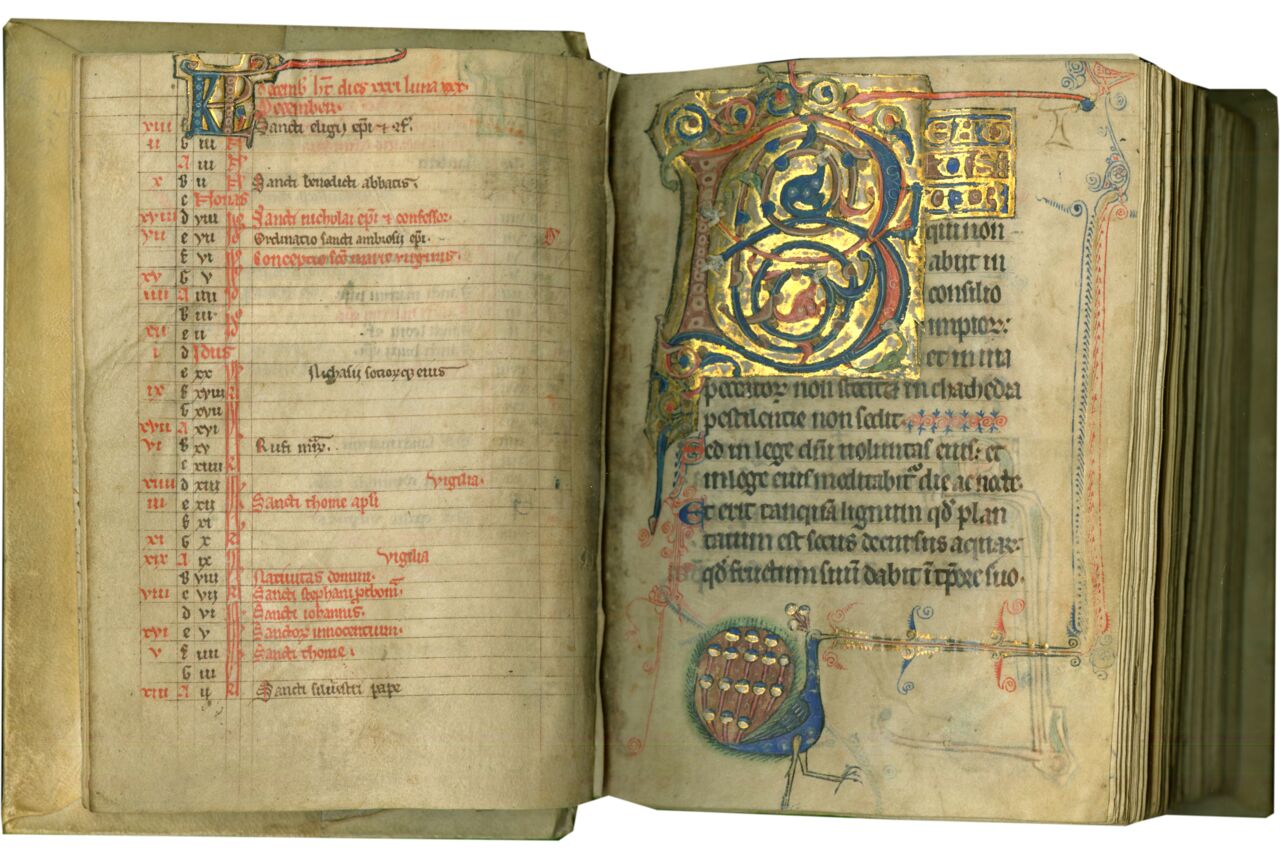 KL Decemb. ht dies xxxi luna xxx.
Decembri.
xiii f Sancti eligij epi & cf.
ii G iiii N
A iii N
x b ii N Sancti benedicti abbatis.
c Nonas
xviii d viii Id Sancti nicholai epi & confessor.
vii e vii Id Ordinatio sancti ambrosii epi.
f vi Conceptio sce marie virginis.
xv G v
iiii A iiii
b iii
xii c ii
i d Idus
e xx Nichasii sociorqs eius
ix f xviii
G xvii
xvii A xvi
vi b xv Rufi mr.
c xiiii
xiiii d xiii Vigilia.
iii e xii Sancti thome apli
f xi
xi G x
xix A ix Vigilia
b viii Natiuitas domini.
viii c vii Sancti stephani prthom.
d vi Sancti iohannis.
xvi e v Sanctor innocentium.
v f iiii Sancti thome.
G iii
xiii A ii Sancti siluestri pape
BEAT
US
qui non
abiit in
consilio
impior:
et in uia
peccator non stetit & in chathedra
pestilentie non sedit.
Sed in lege dni uoluntas eius: et
in lege eius meditabit die ac nocte.
Et erit tanquā lignum qd plan
tatum est secus decursus aquar:
qd fructum suū dabit ī tpre suo.